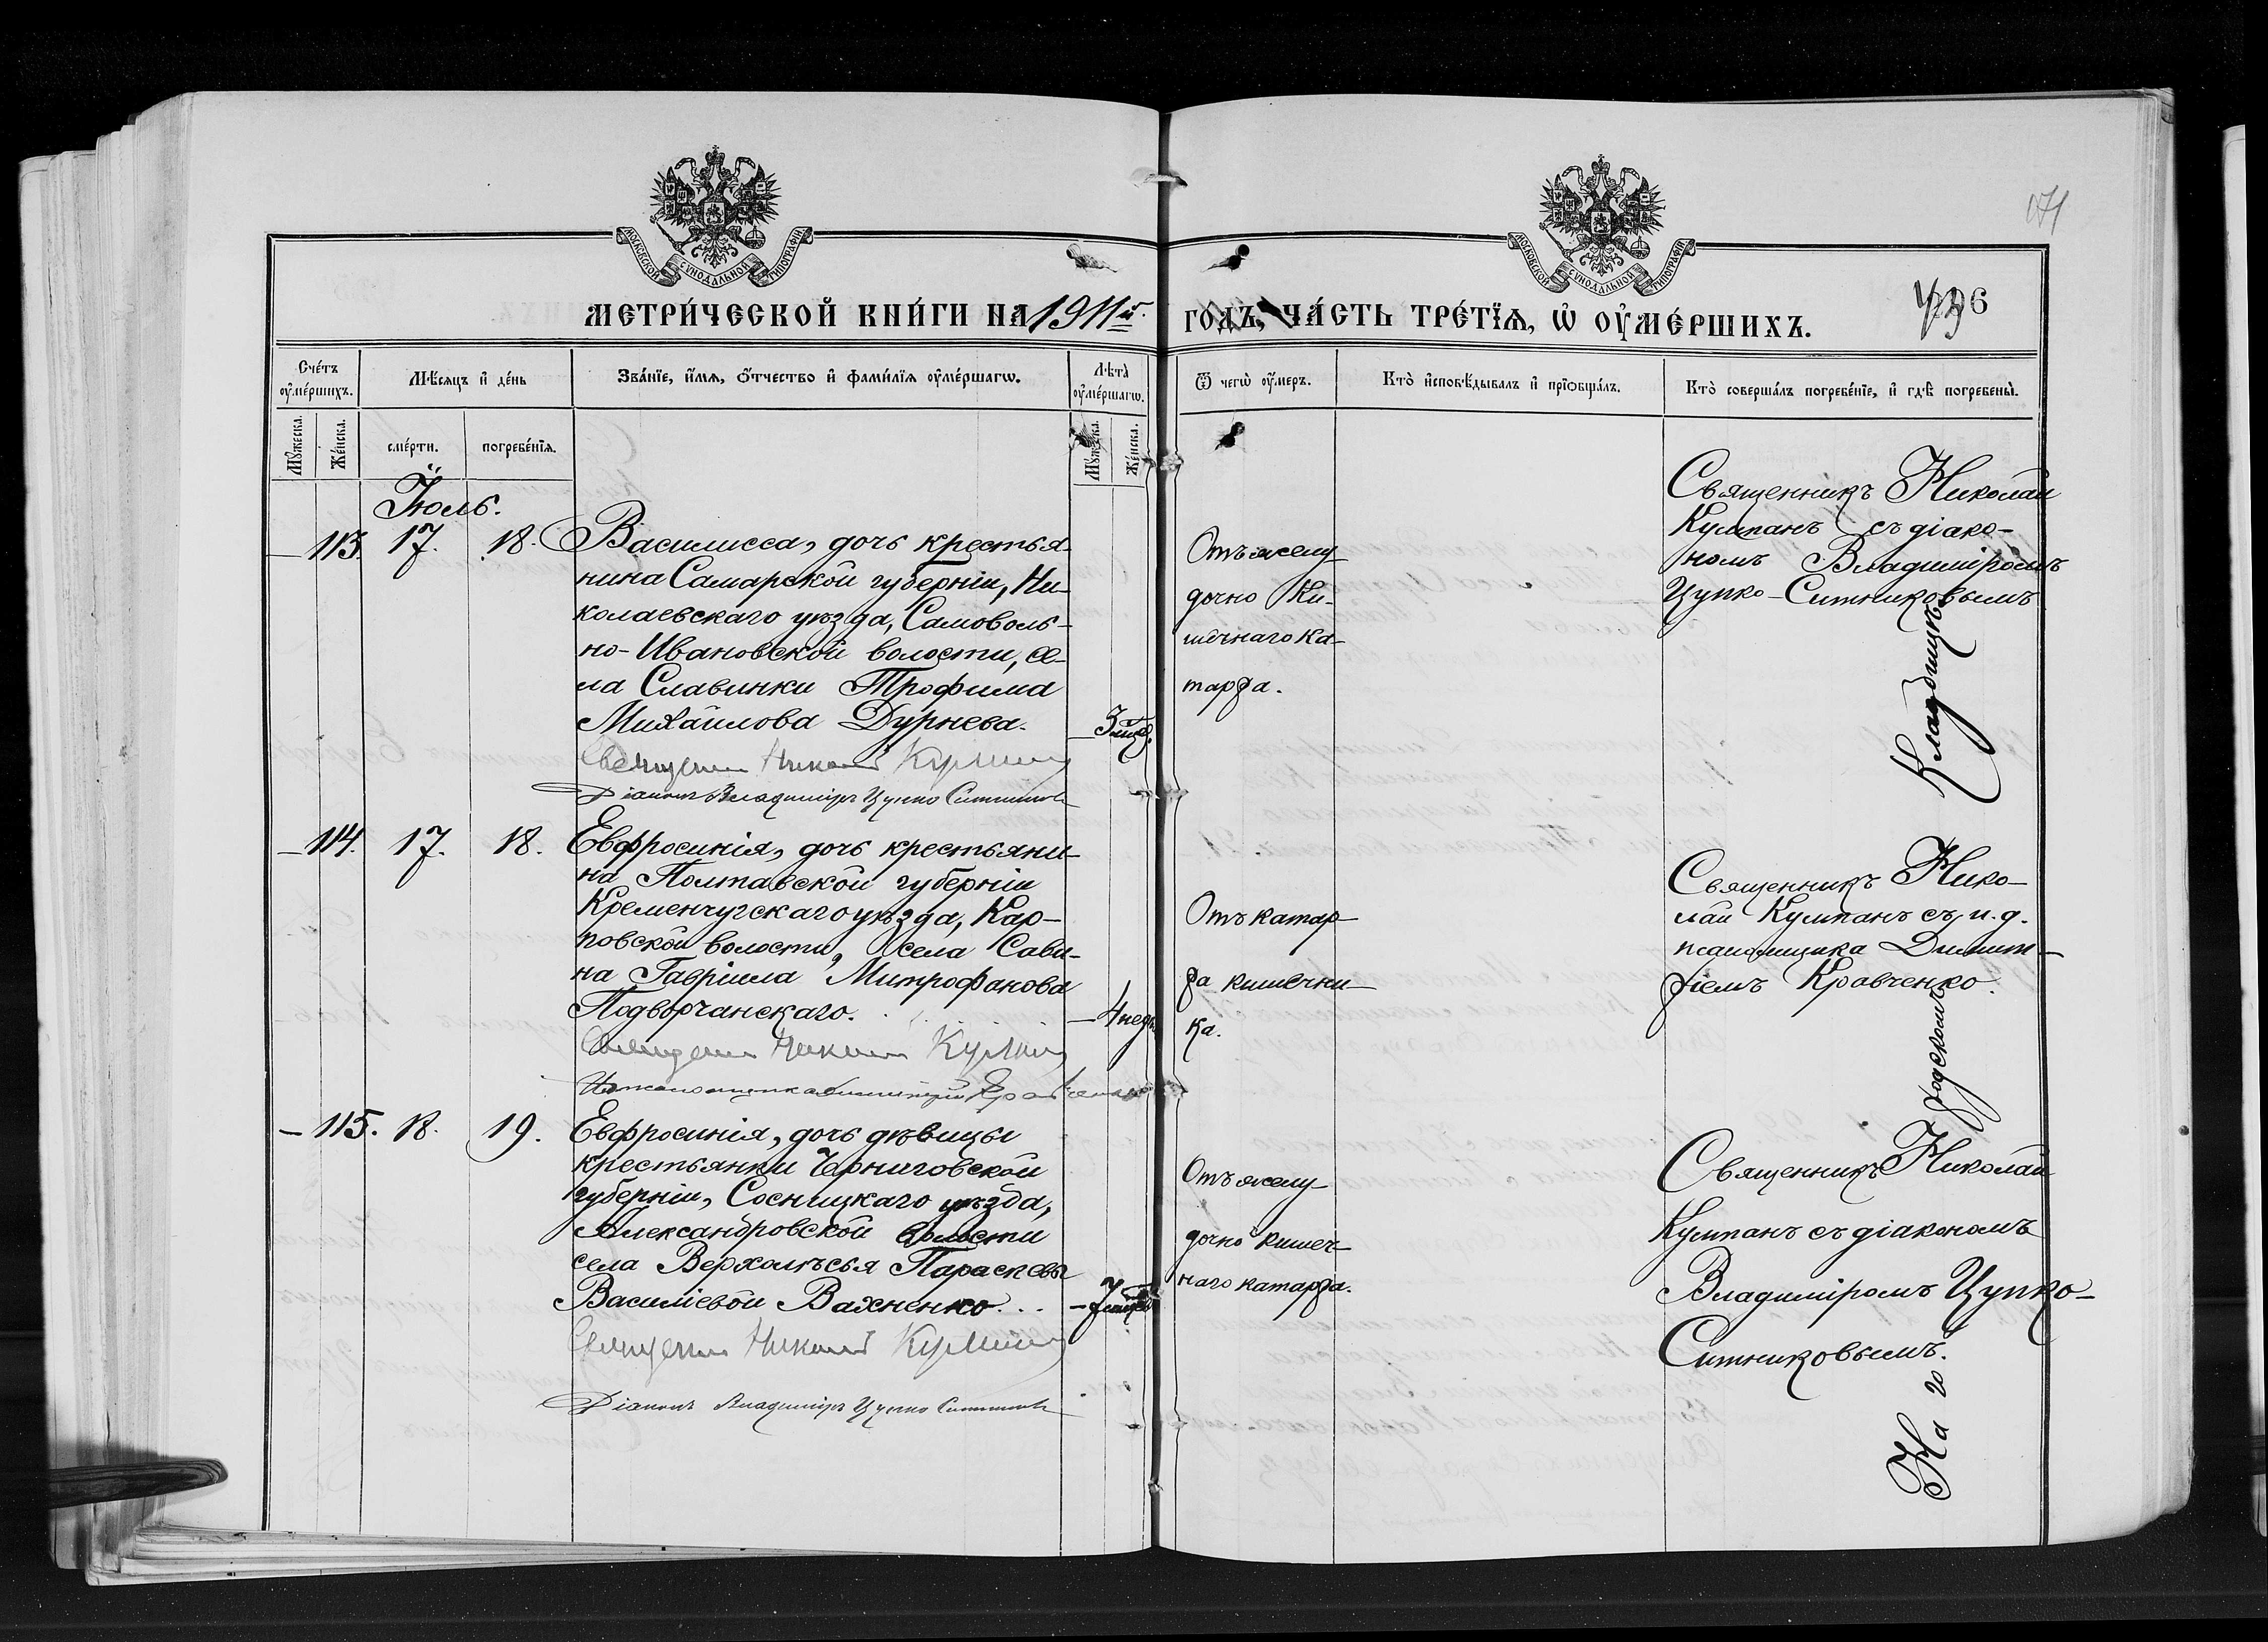 МОСКОВСКОЙ СѴНОДАЛЬНОЙ ТИПОГРАФІИ
МОСКОВСКОЙ СѴНОДАЛЬНОЙ ТИПОГРАФІИ
МЕТРИ́ЧЕСКОЙ КНИ́ГИ НА 1911й. ГОДЪ, ЧА́СТЬ ТРЕ́ТЇѦ, Ѡ ОУ҆МЕ́РШИХЪ.
Сче́тъ оу҆ме́ршихъ.
Мѣ́сѧцъ и҆ де́нь
Зва́нїе, и҆́мѧ, ѻ҆́тчество и҆ фами́лїѧ оу҆ме́ршагѡ.
Лѣта̀ оу҆ме́ршагѡ.
Ѿ чегѡ̀ оу҆́меръ.
Кто̀ и҆сповѣ́дывалъ и҆ прїѡбща́лъ.
Кто̀ соверша́лъ погребе́нїе, и҆ гдѣ̀ погребены̀.
Мꙋ́жеска.
Же́нска.
сме́рти.
погребе́нїѧ.
Мꙋ́жеска.
Же́нска.
Іюль.
113. 17. 18. Василисса, дочь крестья-
нина Самарской губерніи, Ни-
колаевскаго уѣзда, Самоволь-
но-Ивановской волости, се-
ла Славинки Трофима
Михайлова Дурнева.
3 мѣс.
Священникъ Николай Кулпанъ
Діаконъ Владиміръ Цупко Ситниковъ
Отъ желу-
дочно Ки-
шечнаго ка-
тарра.
Священникъ Николай
Кулпанъ съ діако-
номъ Владиміромъ
Цупко-Ситниковымъ
114. 17. 18. Евфросинія, дочь крестьяни-
на Полтавской губерніи
Кременчугскаго уѣзда, Кар-
повской волости, села Сави-
на Гавріила Митрофанова
Подворчанскаго.
4 нед.
Священникъ Николай Кулпанъ
И. д. псаломщика Димитрій Кравченко
Отъ катар-
ра кишечни-
ка.
Священникъ Нико-
лай Кулпанъ съ и. д.
псаломщика Димит-
ріемъ Кравченко.
115. 18. 19. Евфросинія, дочь дѣвицы
крестьянки Черниговской
губерніи, Сосницкаго уѣзда,
Александровской волости
села Верхолѣсья Параскевы
Василіевой Вахненко...
7 мѣс.
Священникъ Николай Кулпанъ
Діаконъ Владиміръ Цупко Ситниковъ
Отъ желу-
дочно кишеч-
наго катарра.
Священникъ Николай
Кулпанъ съ діакономъ
Владиміромъ Цупко-
Ситниковымъ.
На городскомъ Кладбищѣ.